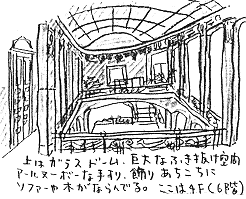 上はガラスドーム．巨大なふき抜け空間
アールヌーボーな手すり、飾り あちこちに
ソファーや木がならんでる。 ここは4F(6階)